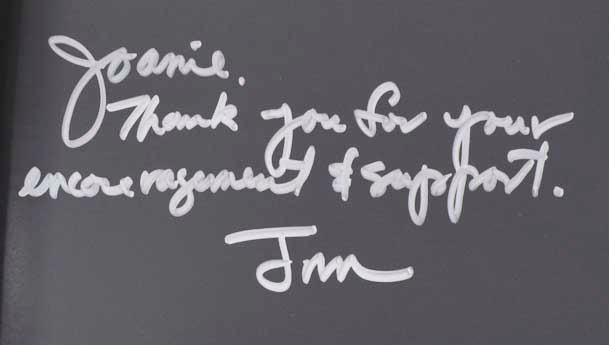 Joanie.
Thank you for your
encouragement & support.
Jim